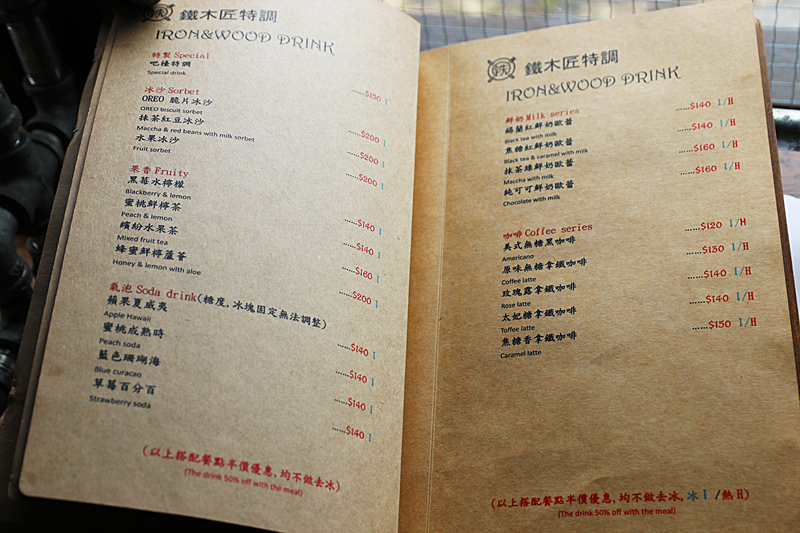 鐵木匠特調
IRON&WOOD DRINK
特製 Special
吧檯特調 ......$150 I
Special drink
冰沙 Sorbet
OREO 脆片冰沙 ......$200 I
OREO biscuit sorbet
抹茶紅豆冰沙 ......$200 I
Maccha & red beans with milk sorbet
水果冰沙 ......$200 I
Fruit sorbet
果香 Fruity
黑莓水檸檬 ......$140 I
Blackberry & lemon
蜜桃鮮檸茶 ......$140 I
Peach & lemon
繽紛水果茶 ......$160 I
Mixed fruit tea
蜂蜜鮮檸蘆薈 ......$200 I
Honey & lemon with aloe
氣泡 Soda drink(糖度,冰塊固定無法調整)
蘋果夏威夷 ......$140 I
Apple Hawaii
蜜桃成熟時 ......$140 I
Peach soda
藍色珊瑚海 ......$140 I
Blue curacao
草莓百分百 ......$140 I
Strawberry soda
(以上搭配餐點半價優惠,均不做去冰)
(The drink 50% off with the meal)
鐵木匠特調
IRON&WOOD DRINK
鮮奶 Milk series
錫蘭紅鮮奶歐蕾 ......$140 I/H
Black tea with milk
焦糖紅鮮奶歐蕾 ......$140 I/H
Black tea & caramel with milk
抹茶綠鮮奶歐蕾 ......$160 I/H
Maccha with milk
純可可鮮奶歐蕾 ......$160 I/H
Chocolate with milk
咖啡 Coffee series
美式無糖黑咖啡 ......$120 I/H
Americano
原味無糖拿鐵咖啡 ......$130 I/H
Coffee latte
玫瑰露拿鐵咖啡 ......$140 I/H
Rose latte
太妃糖拿鐵咖啡 ......$140 I/H
Toffee latte
焦糖香拿鐵咖啡 ......$150 I/H
Caramel latte
(以上搭配餐點半價優惠,均不做去冰,冰 I /熱 H)
(The drink 50% off with the meal)